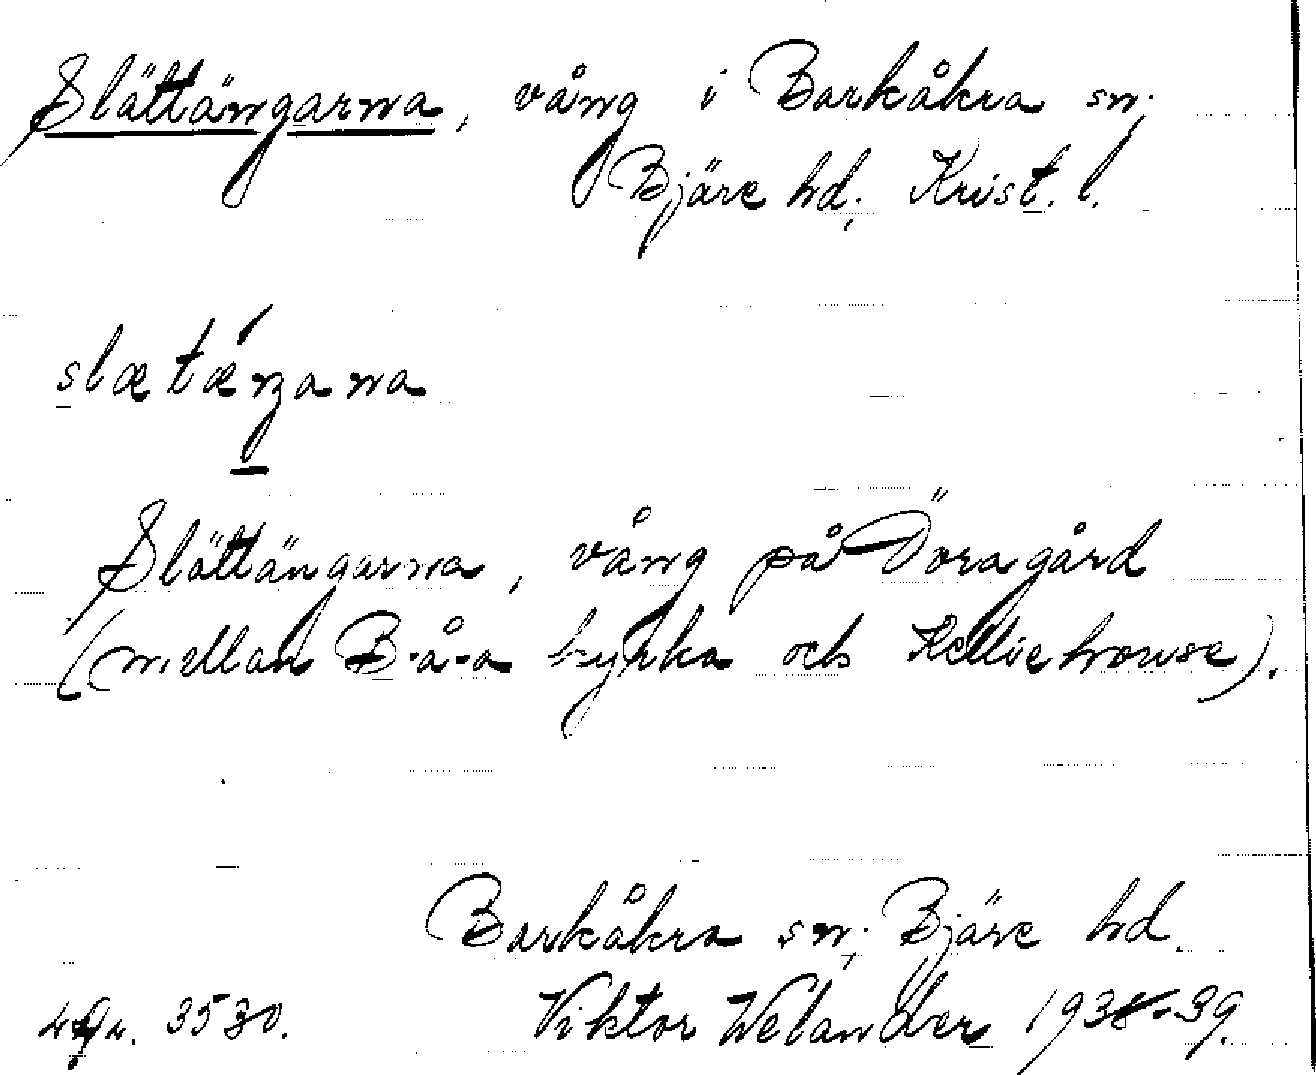 Slättängarna, vång i Barkåkra sn;
Bjäre hd; Krist. l.
slætæŋana
Slättängarna, vång på Döragård
(mellan B-å-a kyrka och Kelliehouse).
Barkåkra sn; Bjäre hd.
3530. Viktor Welander 1938-39.